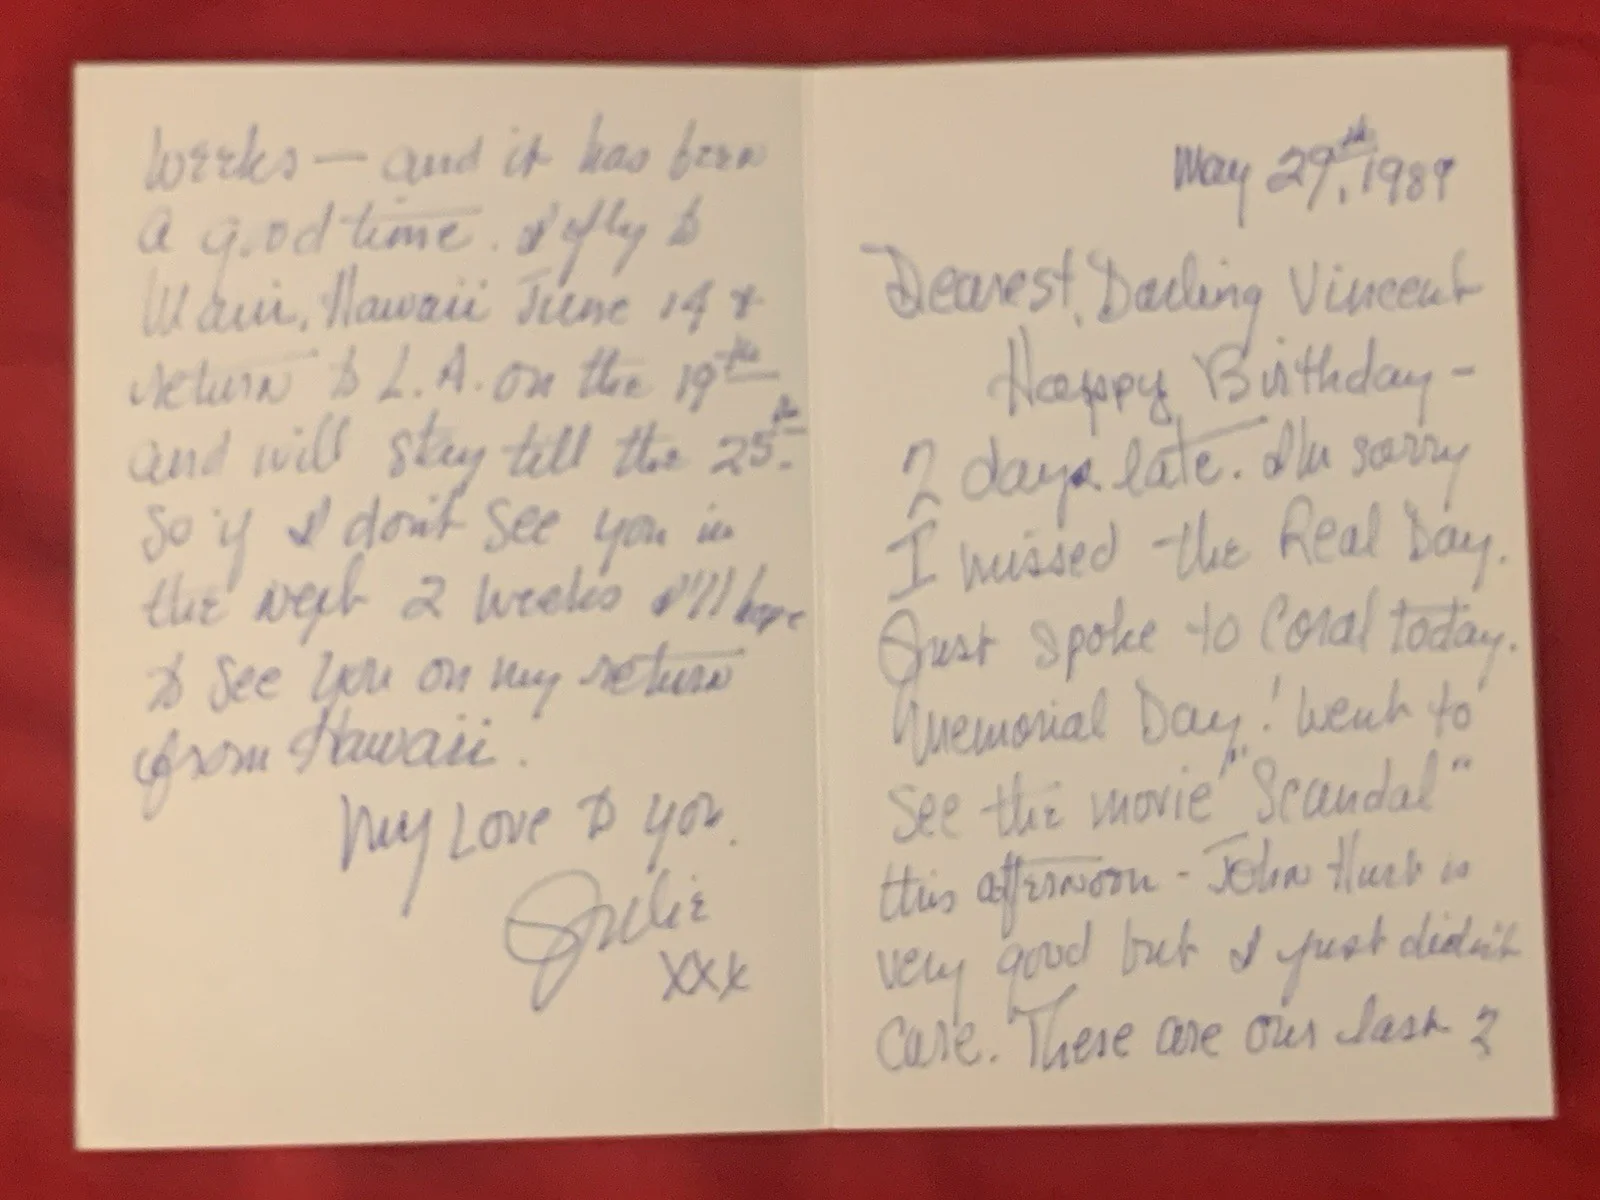 May 29th, 1989
Dearest, Darling Vincent
Happy Birthday -
2 days late. I'm sorry
I missed the Real Day.
Just spoke to Coral today.
Memorial Day! Went to
see the movie "Scandal"
this afternoon - John Hurt is
very good but I just didn't
care. These are our last 2
weeks — and it has been
a good time. I fly to
Maui, Hawaii June 14 &
return to L.A. on the 19th
and will stay till the 25th.
So if I don't see you in
the next 2 weeks I'll hope
to see you on my return
from Hawaii.
My Love to you.
Julie
xxx